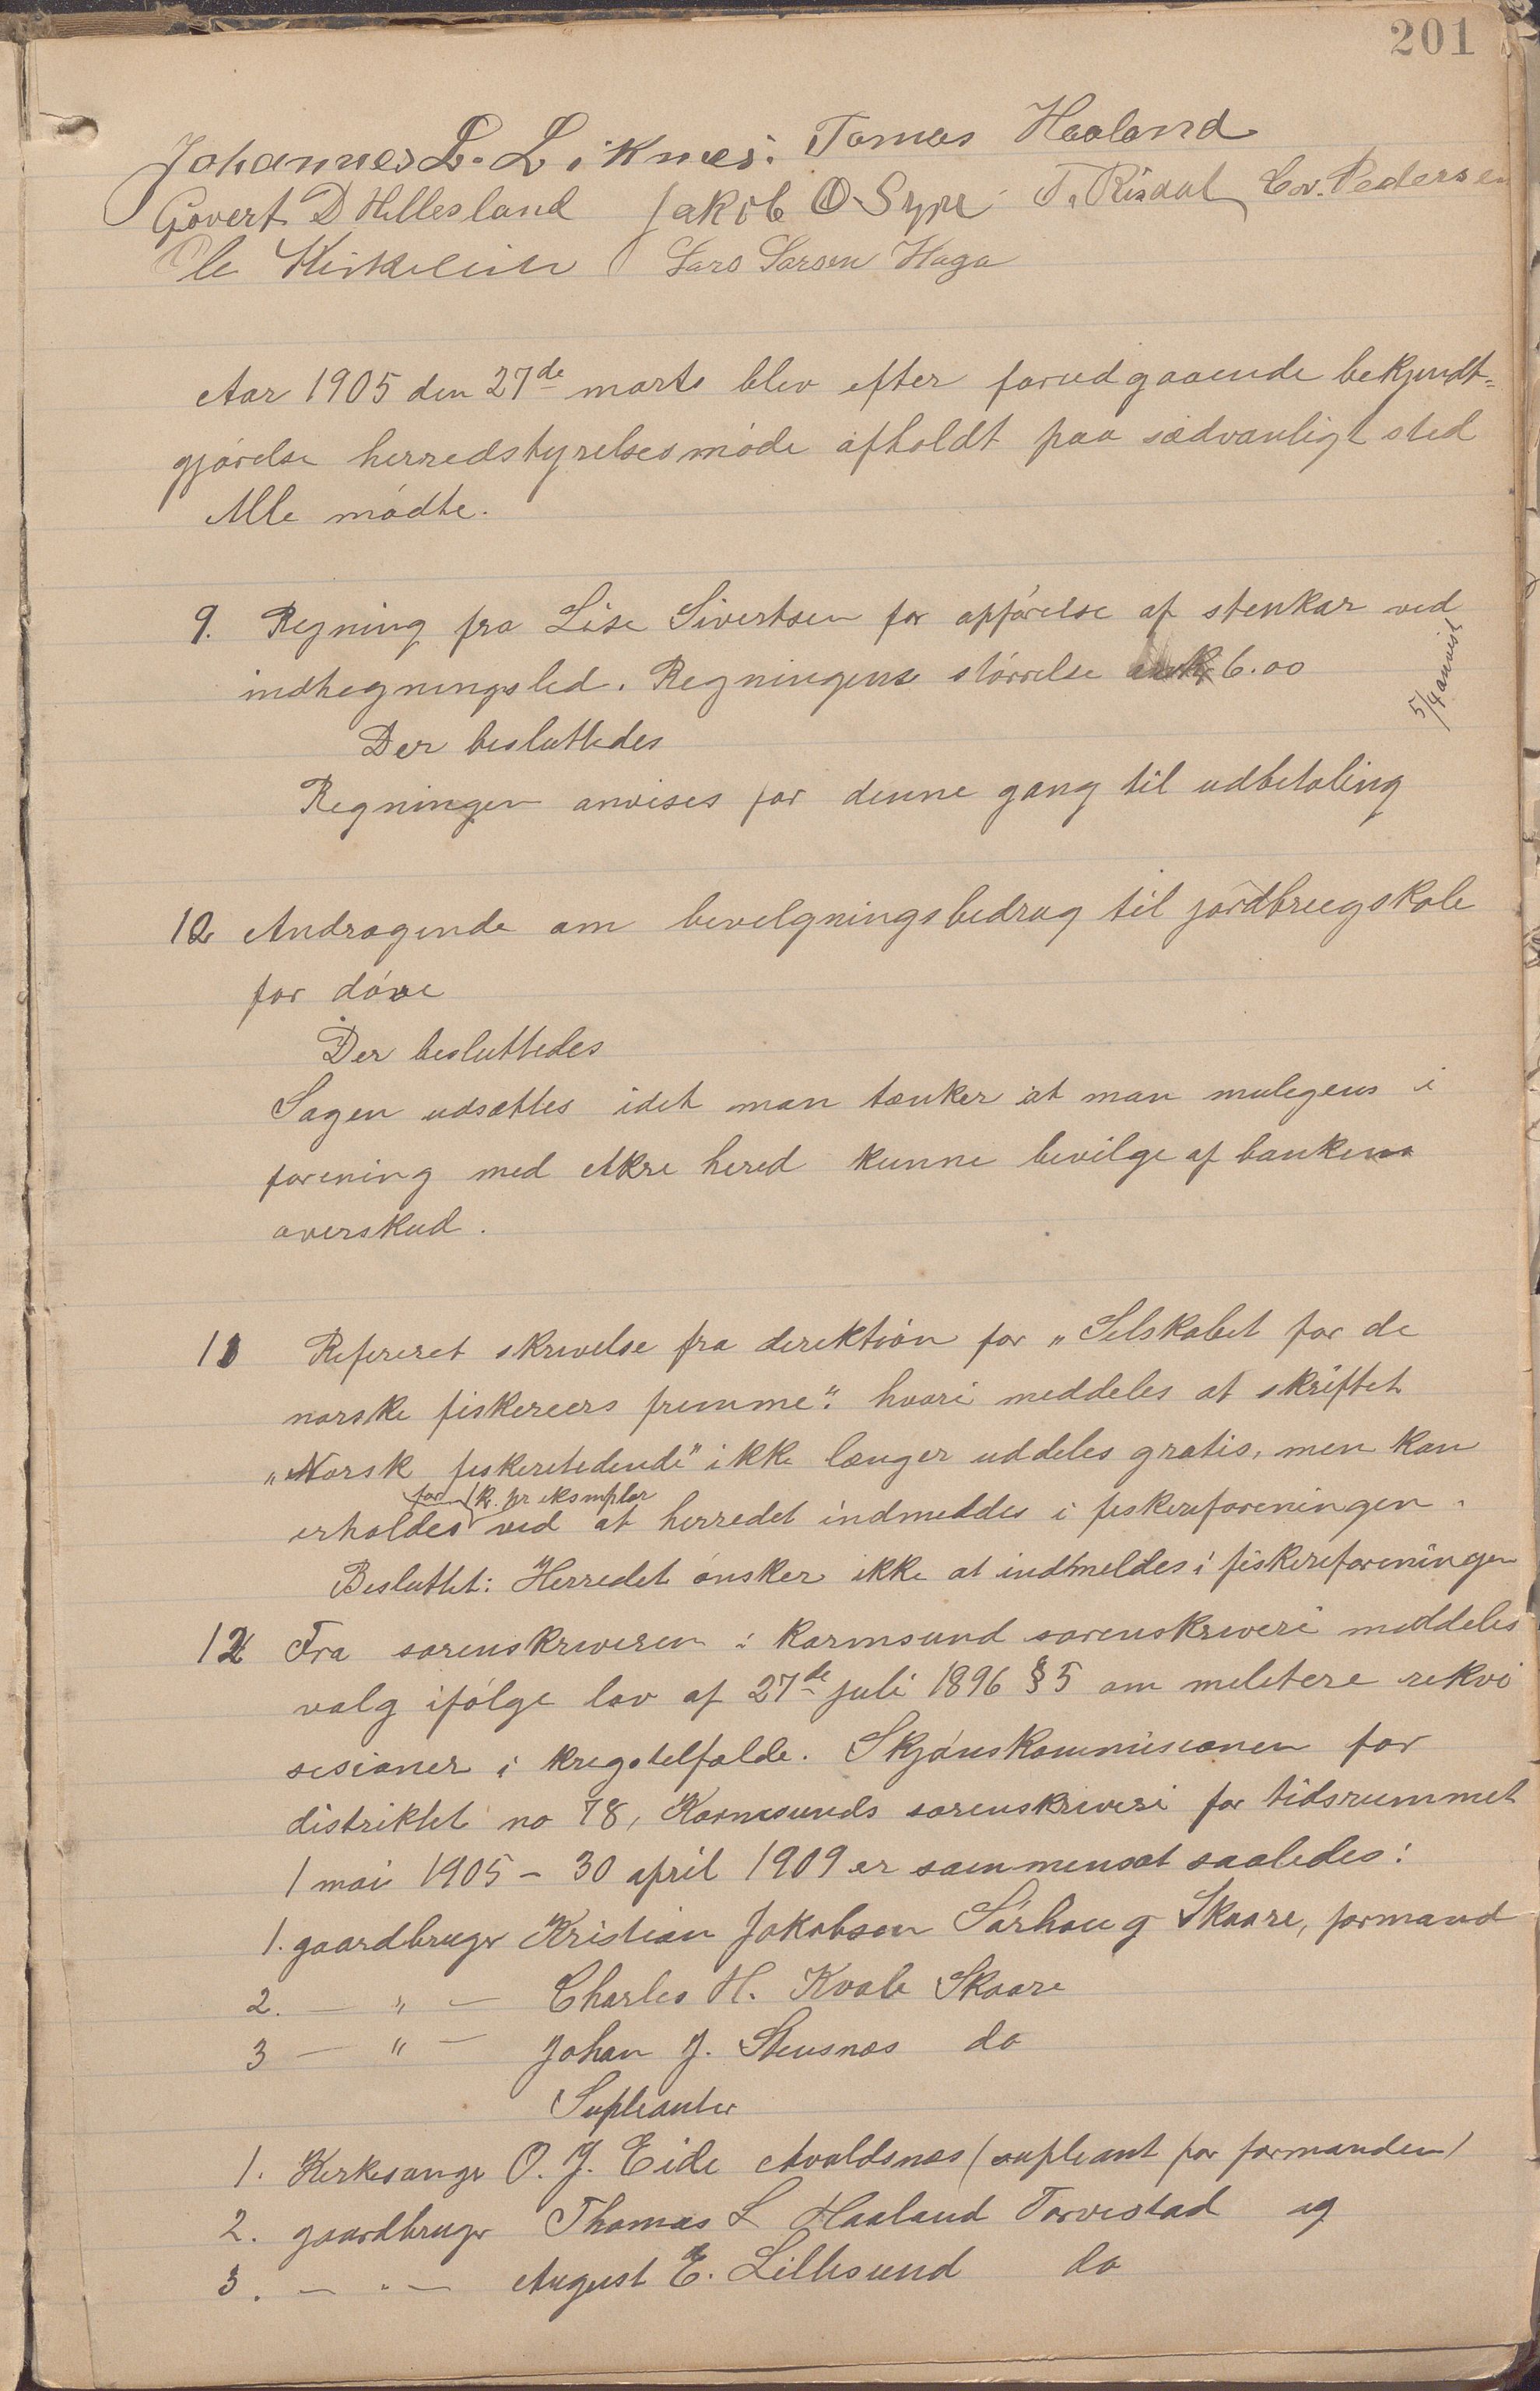 201
Johannes L. Liknes. Tomas Haaland
Govert D Hillesland Jakob O Syre T. Risdal Chr. Pedersen
Ole Kirkeleite Lars Larsen Haga
Aar 1905 den 27de marts blev efter forudgaaende bekjendt=
gjørelse herredstyrelsesmøde afholdt paa sædvanligt sted
Alle mødte.
9. Regning fra Lise Sivertsen for opførelse af stenkar ved
indhegningsled. Regningens størrelse kr 6.00
5/4 anvist
Der besluttedes
Regningen anvises for denne gang til udbetaling
10 Andragende om bevelgningsbedrag til jordbrugskole
for døve
Der besluttedes
Sagen udsættes idet man tænker at man mulegens i
forening med Akre hered kunne bevilge af bankens
overskud.
11 Refereret skrivelse fra direktion for „Selskabet for de
norske fiskereers fremme“ hvori meddeles at skriftet
„Norsk fiskeretedende“ ikke længer uddeles gratis, men kan
for 1 kr. pr eksmplar
erholdes ved at herredet indmeddes i fiskereforeningen.
Besluttet: Herredet ønsker ikke at indmeldes i fiskereforeningen
12 Fra sorenskriveren i Karmsund sorenskriveri meddeles
valg ifølge lov af 27de juli 1896 § 5 om meletere rekvi
sesioner i kregstelfælde. Skjønskommisionen for
distriktet no 78, Karmsunds sorenskriveri for tidsrummet
1 mai 1905 – 30 april 1909 er sammensat saaledes:
1. gaardbruger Kristian Jakobsen Sørhaug Skaare, formand
2. — „ — Charles H. Kvale Skaare
3 — „ — Johan J. Stensnæs do
Supleanter
1. Kerkesanger O. J. Eide Avaldsnæs (supleant for formanden)
2. gaardbruger Thomas L Haaland Torvestad og
3. — „ — August E. Lillesund do